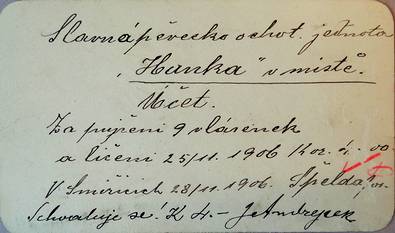 Slavná pěvecko ochot. jednota
„Hanka" v místě.
Účet.
Za pujčení 9 vlásenek
a líčení 25/11. 1906 Kor. 4.-
V Smiřicích 28/11. 1906. Špelda
Schvaluje se! K 4.-